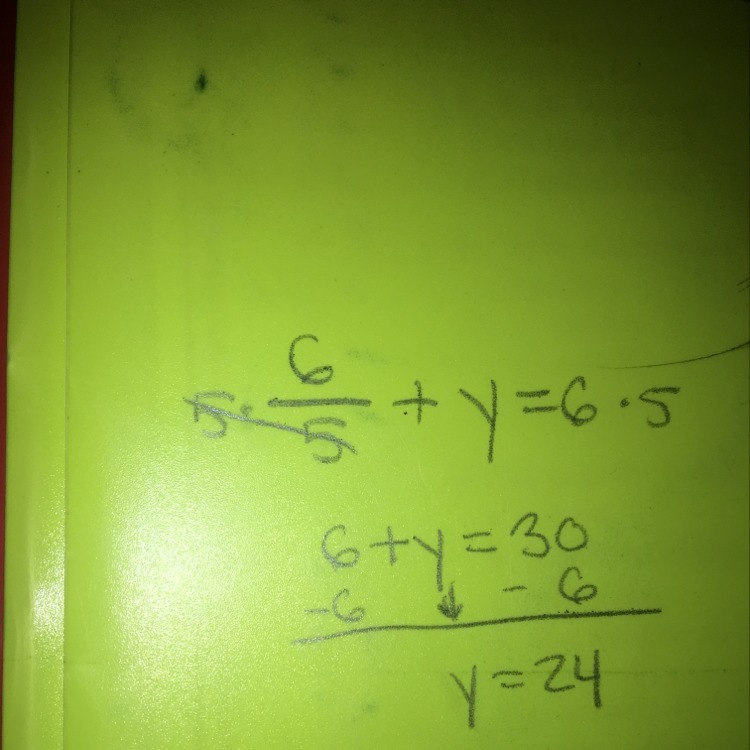 5 · 6/5 + y = 6 · 5
6 + y = 30
-6 ↓ - 6
y = 24